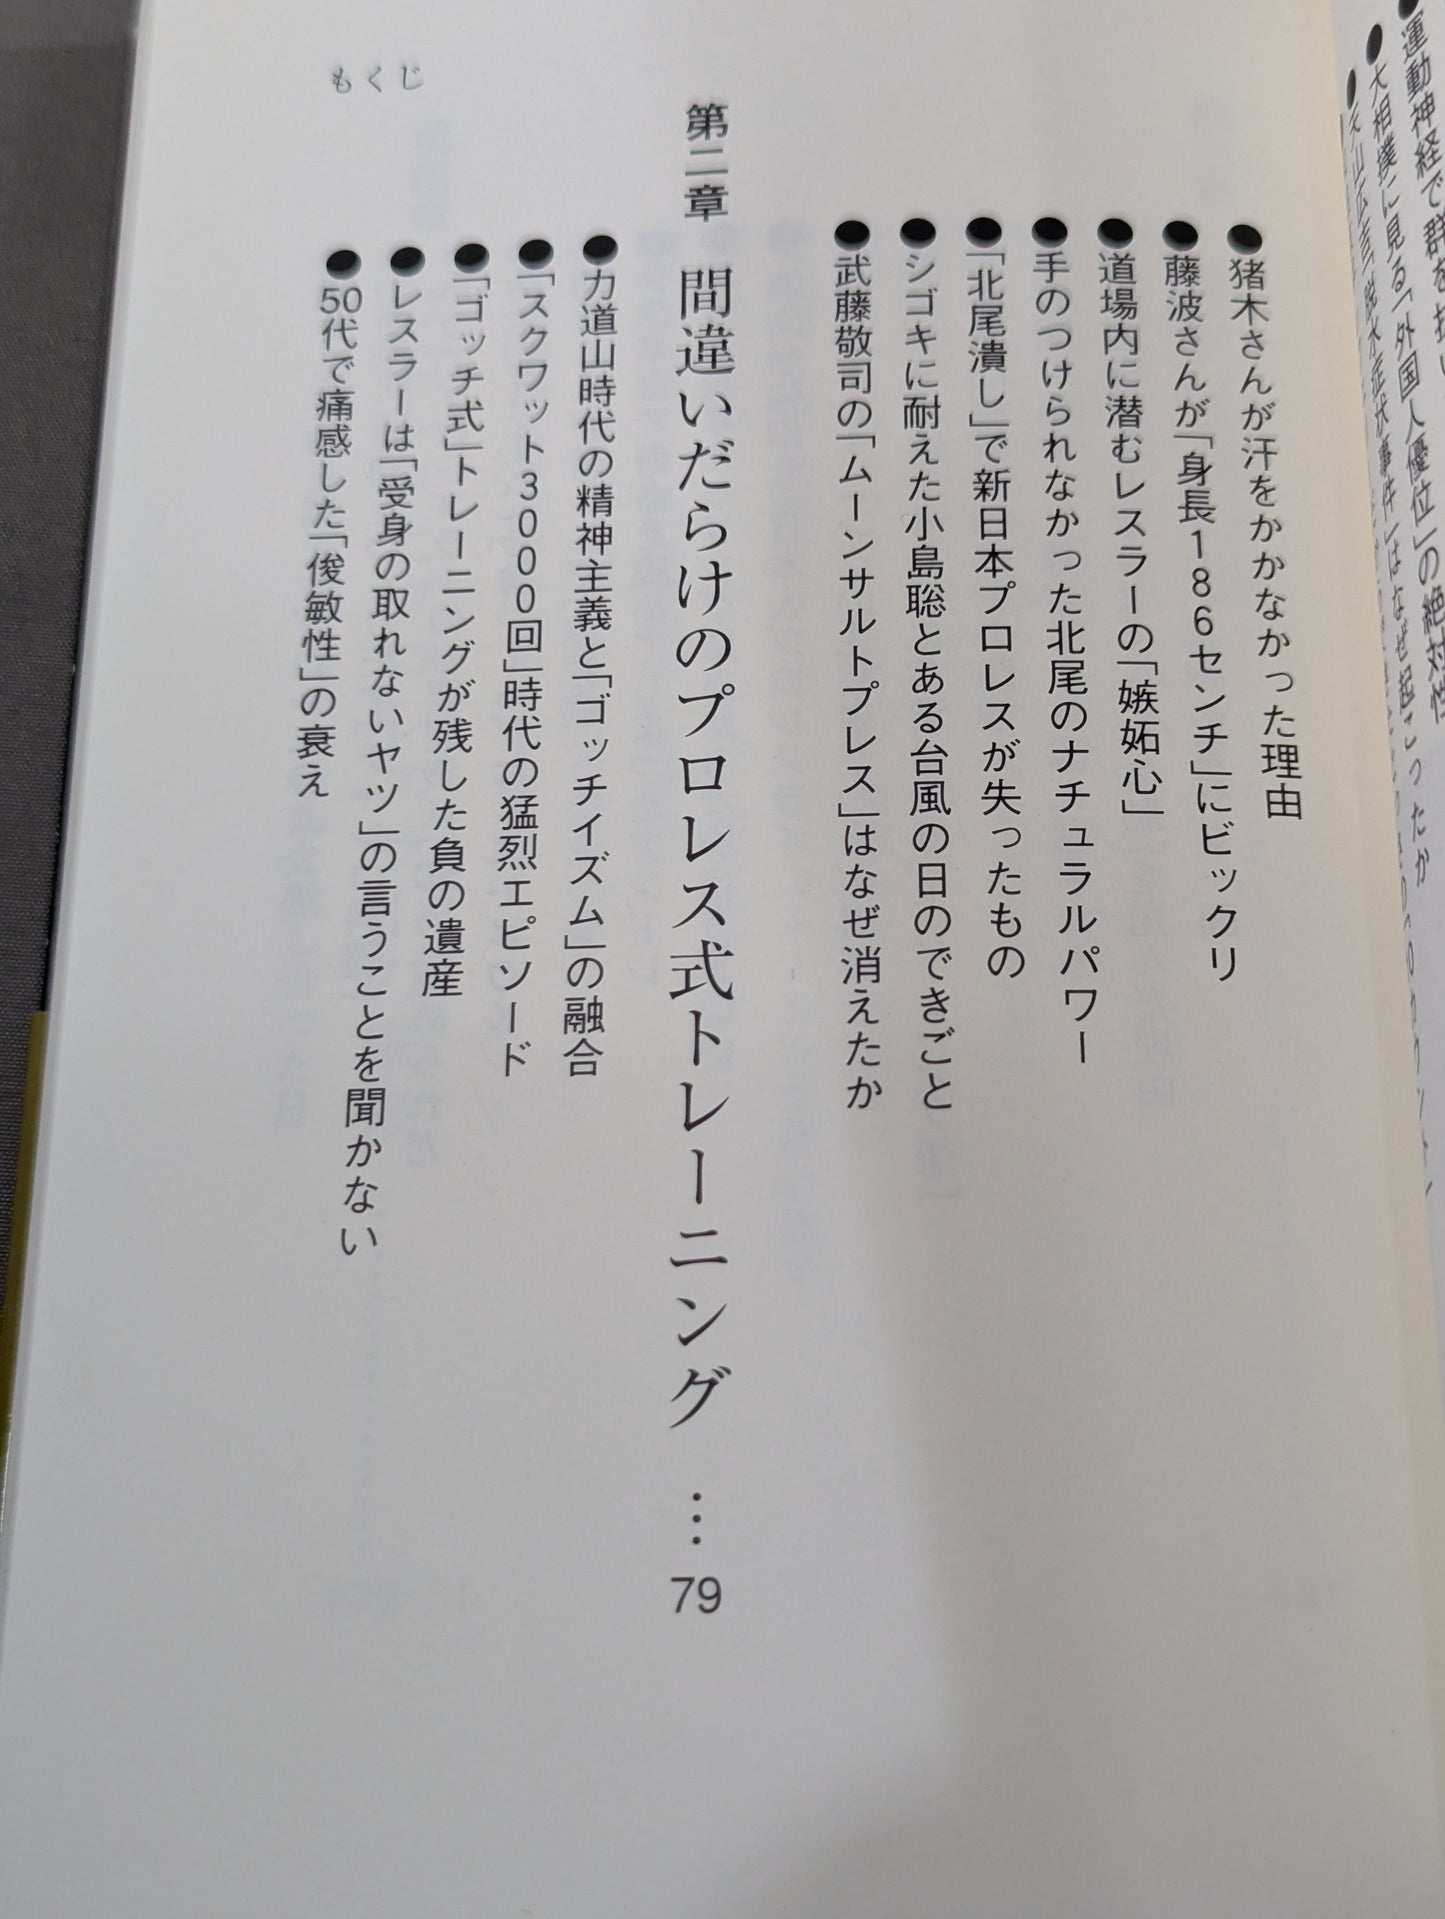 もくじ
●運動神経で群を抜い
●大相撲に見る「外国人優位」の絶対性
●猪木さんが汗をかかなかった理由
●藤波さんが「身長186センチ」にビックリ
●道場内に潜むレスラーの「嫉妬心」
●手のつけられなかった北尾のナチュラルパワー
●「北尾潰し」で新日本プロレスが失ったもの
●シゴキに耐えた小島聡とある台風の日のできごと
●武藤敬司の「ムーンサルトプレス」はなぜ消えたか
第二章 間違いだらけのプロレス式トレーニング … 79
●力道山時代の精神主義と「ゴッチイズム」の融合
●「スクワット3000回」時代の猛烈エピソード
●「ゴッチ式」トレーニングが残した負の遺産
●レスラーは「受身の取れないヤツ」の言うことを聞かない
●50代で痛感した「俊敏性」の衰え